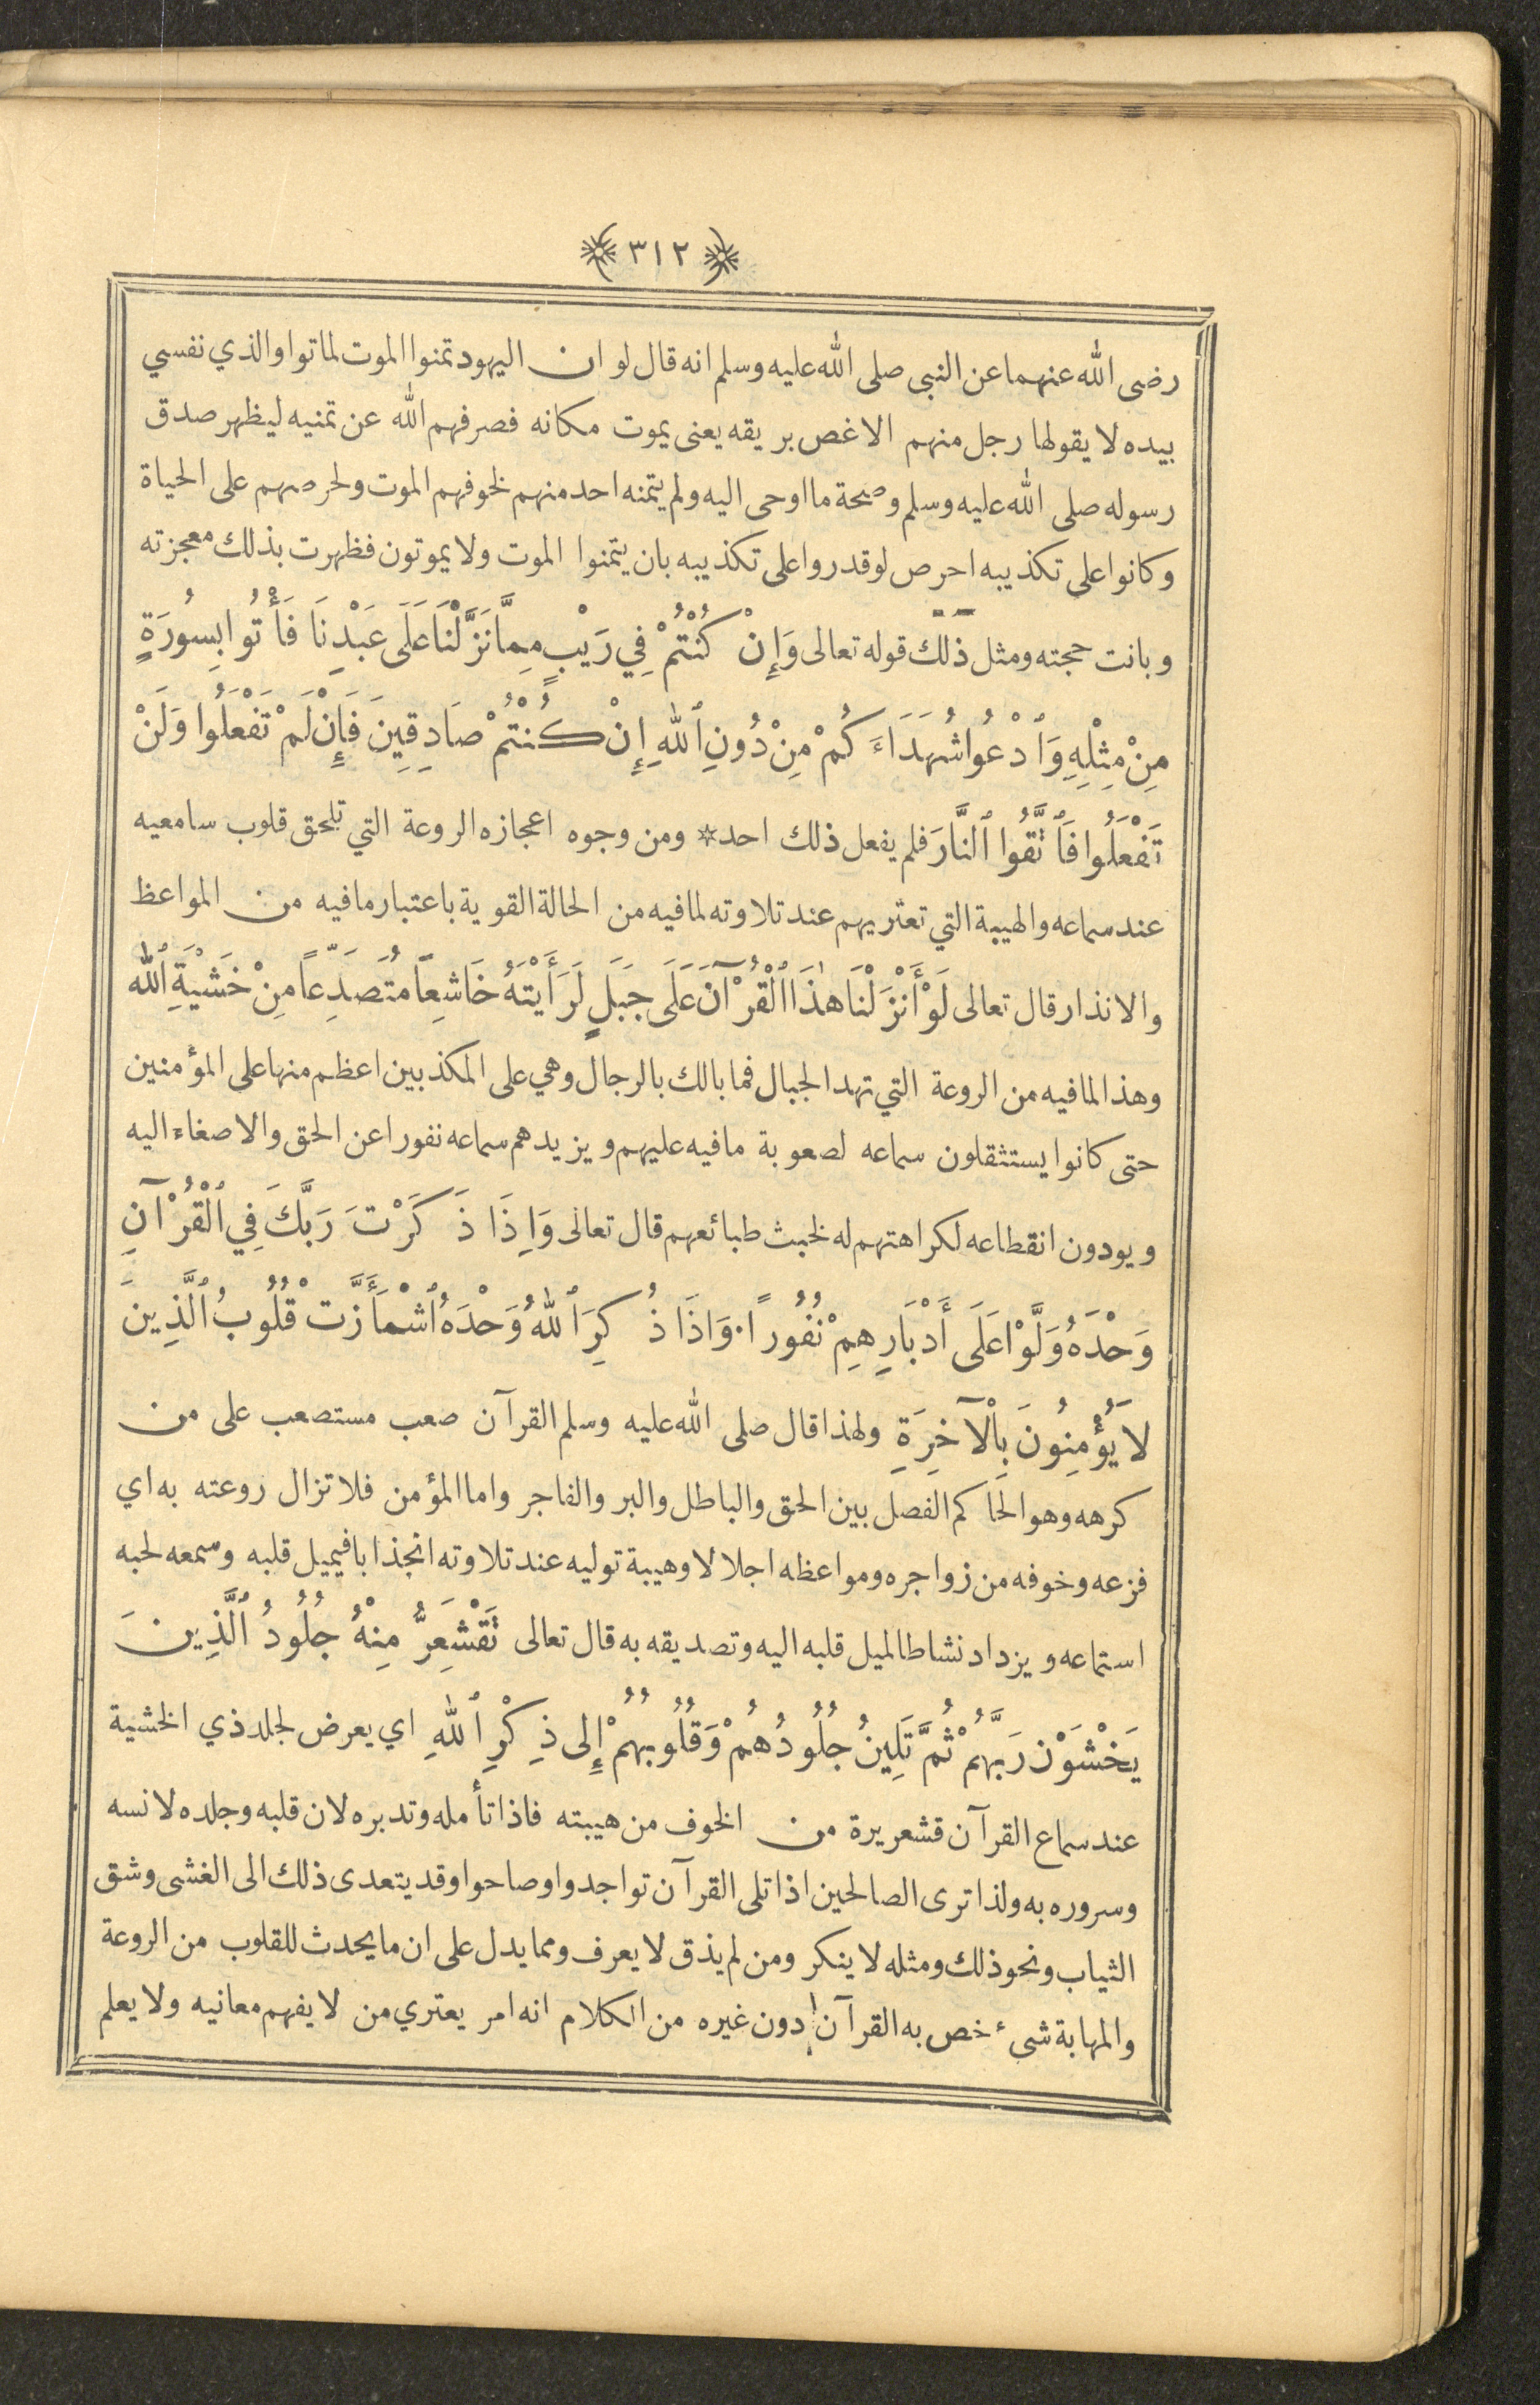 ٣١٢
رضى الله عنهما عن النبى صلى الله عليه وسلم انه قال لو ان اليهود تمنوا الموت لماتوا والذي نفسي
بيده لا يقولها رجل منهم الا غص بريقه يعنى يموت مكانه فصرفهم الله عن تمنيه ليظهر صدق
رسوله صلى الله عليه وسلم وصحة ما اوحى اليه ولم يتمنه احد منهم لخوفهم الموت ولحرصهم على الحياة
وكانوا على تكذيبه احرص لو قدروا على تكذيبه بان يتمنوا الموت ولا يموتون فظهرت بذلك معجزته
وبانت حجته ومثل ذلك قوله تعالى وَإِنْ كُنْتُمْ فِي رَيْبٍ مِمَّا نَزَّلْنَا عَلَى عَبْدِنَا فَأْتُوا بِسُورَةٍ
مِنْ مِثْلِهِ وَٱدْعُوا شُهَدَاءَكُمْ مِنْ دُونِ ٱللهِ إِنْ كُنْتُمْ صَادِقِينَ فَإِنْ لَمْ تَفْعَلُوا وَلَنْ
تَفْعَلُوا فَٱتَّقُوا ٱلنَّارَ فلم يفعل ذلك احد * ومن وجوه اعجازه الروعة التي تلحق قلوب سامعيه
عند سماعه والهيبة التي تعتريهم عند تلاوته لما فيه من الحالة القوية باعتبار ما فيه من المواعظ
والانذار قال تعالى لَوْ أَنْزَلْنَا هٰذَا ٱلْقُرْآنَ عَلَى جَبَلٍ لَرَأَيْتَهُ خَاشِعاً مُتَصَدِّعاً مِنْ خَشْيَةِ ٱلله
وهذا لما فيه من الروعة التي تهد الجبال فما بالك بالرجال وهي على المكذبين اعظم منها على المؤمنين
حتى كانوا يستثقلون سماعه لصعوبة ما فيه عليهم ويزيدهم سماعه نفورا عن الحق والاصغاء اليه
ويودون انقطاعه لكراهتهم له لخبث طبائعهم قال تعالى وَاِذَا ذَكَرْتَ رَبَّكَ فِي ٱلْقُرْآنِ
وَحْدَهُ وَلَّوْا عَلَى أَدْبَارِهِمْ نُفُوراً. وَاذَا ذُكِرَ ٱللهُ وَحْدَهُ ٱشْمَأَزَّتْ قُلُوبُ ٱلَّذِينَ
لاَ يُؤْمِنُونَ بِالْآخِرَةِ ولهذا قال صلى الله عليه وسلم القرآن صعب مستصعب على من
كرهه وهو الحاكم الفصل بين الحق والباطل والبر والفاجر واما المؤمن فلا تزال روعته به اي
فزعه وخوفه من زواجره ومواعظه اجلالا وهيبة توليه عند تلاوته انجذابا فيميل قلبه وسمعه لحبه
استماعه ويزداد نشاطا لميل قلبه اليه وتصديقه به قال تعالى تَقْشَعِرُّ مِنْهُ جُلُودُ ٱلَّذِينَ
يَخْشَوْن رَبَّهُمْ ثُمَّ تَلِينُ جُلُودُهُمْ وَقُلُوبُهُمْ إِلى ذِكْرِ ٱللهِ اي يعرض لجلد ذي الخشية
عند سماع القرآن قشعريرة من الخوف من هيبته فاذا تأمله وتدبره لان قلبه وجلده لانسه
وسروره به ولذا ترى الصالحين اذا تلى القرآن تواجدوا وصاحوا وقد يتعدى ذلك الى الغشى وشق
الثياب ونحو ذلك ومثله لا ينكر ومن لم يذق لا يعرف ومما يدل على ان ما يحدث للقلوب من الروعة
والمهابة شىء خص به القرآن دون غيره من الكلام انه امر يعتري من لا يفهم معانيه ولا يعلم